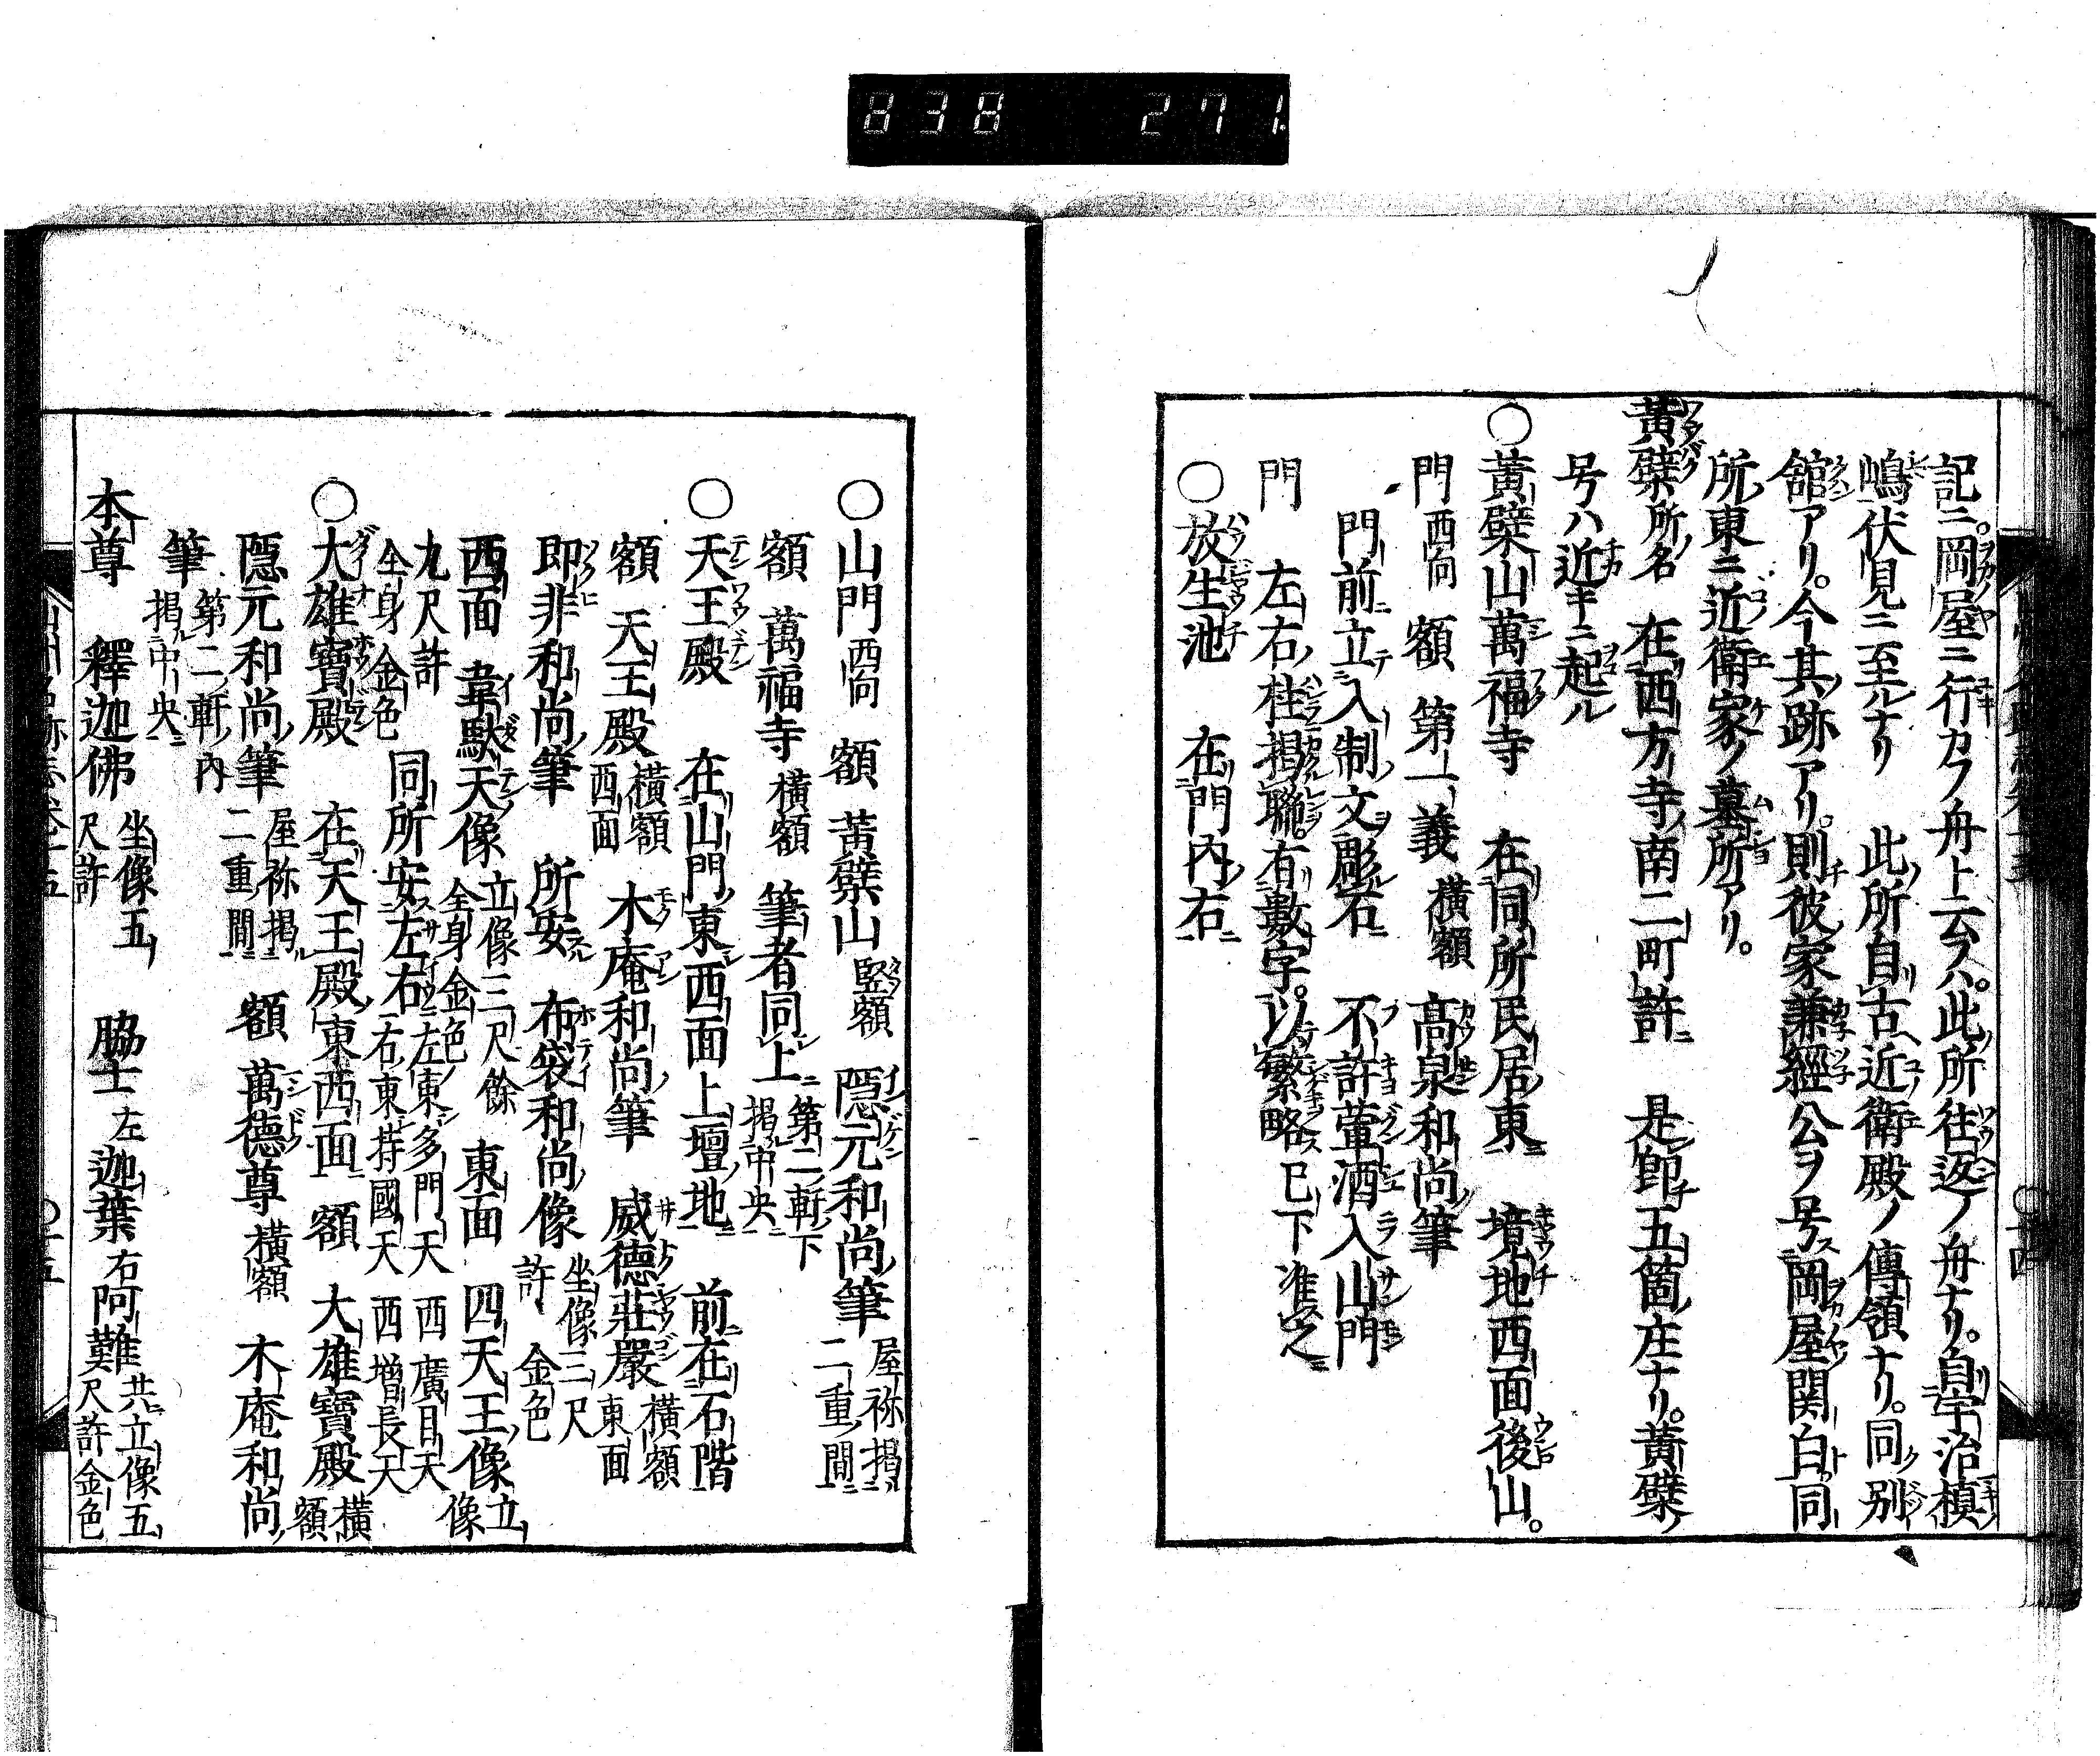 838 271.
記ニ。岡屋ニ行カフ舟ト云フハ。此所往返ノ舟ナリ。自宇治槙
嶋伏見ニ至ルナリ 此所自古近衛殿ノ傳領ナリ。同別
舘アリ。今其跡アリ。則彼家兼經公ヲ号ス岡屋関白ト。同
所東ニ近衛家ノ墓所アリ。
黄檗所ノ名 在西方寺南二町許ニ 是即チ五箇ノ庄ナリ。黄檗ノ
号ハ近キニ起ル
〇黄檗山萬福寺 在同所民居東ニ 境地西面後山。
門西向 額 第一義横額 高泉和尚ノ筆
門前ニ立テ入制ノ文ヲ彫石ニ 不許葷酒入山門
門 左右ノ柱掲聯。有數字。以繁略ス 已下准之
〇放生池 在門内ノ右ニ
〇山門西向 額 黄檗山竪額 隠元和尚ノ筆屋祢掲二重ノ間ニ
額 萬福寺横額 筆者同上ニ第二軒ノ下掲中央ニ
〇天王殿 在山門東西面上壇ノ地ニ 前在石階
額 天王殿横額西面 木庵和尚ノ筆 威德莊嚴横額東面
即非和尚筆 所安 布袋和尚ノ像坐像三尺許 金色
西面 韋駄天ノ像立像三尺餘全身金色 東面 四天王ノ像立像
九尺許全身金色 同所安左右ニ左東多門天 西廣目天右東持國天 西増長天
〇大雄寶殿 在天王殿東西面 額 大雄寶殿横額
隠元和尚ノ筆屋祢掲二重間ニ 額 萬德尊横額 木庵和尚ノ
筆第二軒ノ内掲中央ニ
本尊 釋迦佛坐像五尺許 脇士左迦葉右阿難共ニ立像五尺許金色